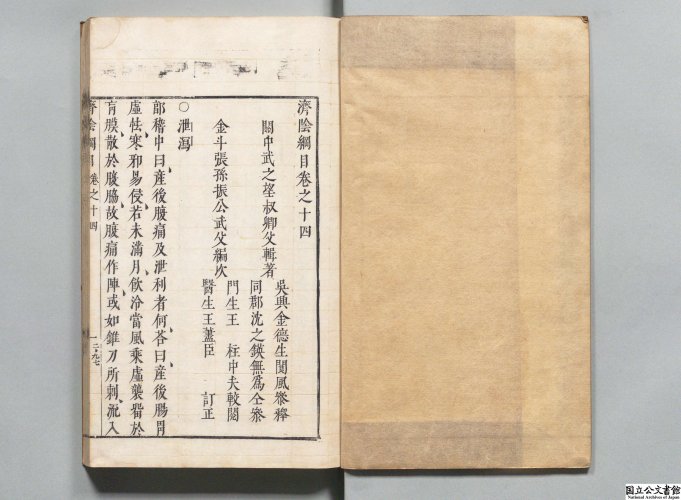 濟陰綱目卷之十四
關中武之望叔卿父輯著
金斗張孫振公武父編次
吳興金德生閬風叅釋
同郡沈之鍈無爲仝叅
門生王 枉中夫較閱
醫生王藎臣 訂正
○泄瀉
郭稽中曰產後腹痛及泄利者何荅曰產後腸胃
虛怯寒邪易侵若未滿月飲冷當風乘虛襲畱於
肓膜散於腹脇故腹痛作陣或如錐刀所刺流入
濟陰綱目 卷之十四
国立公文書館
National Archives of Japan